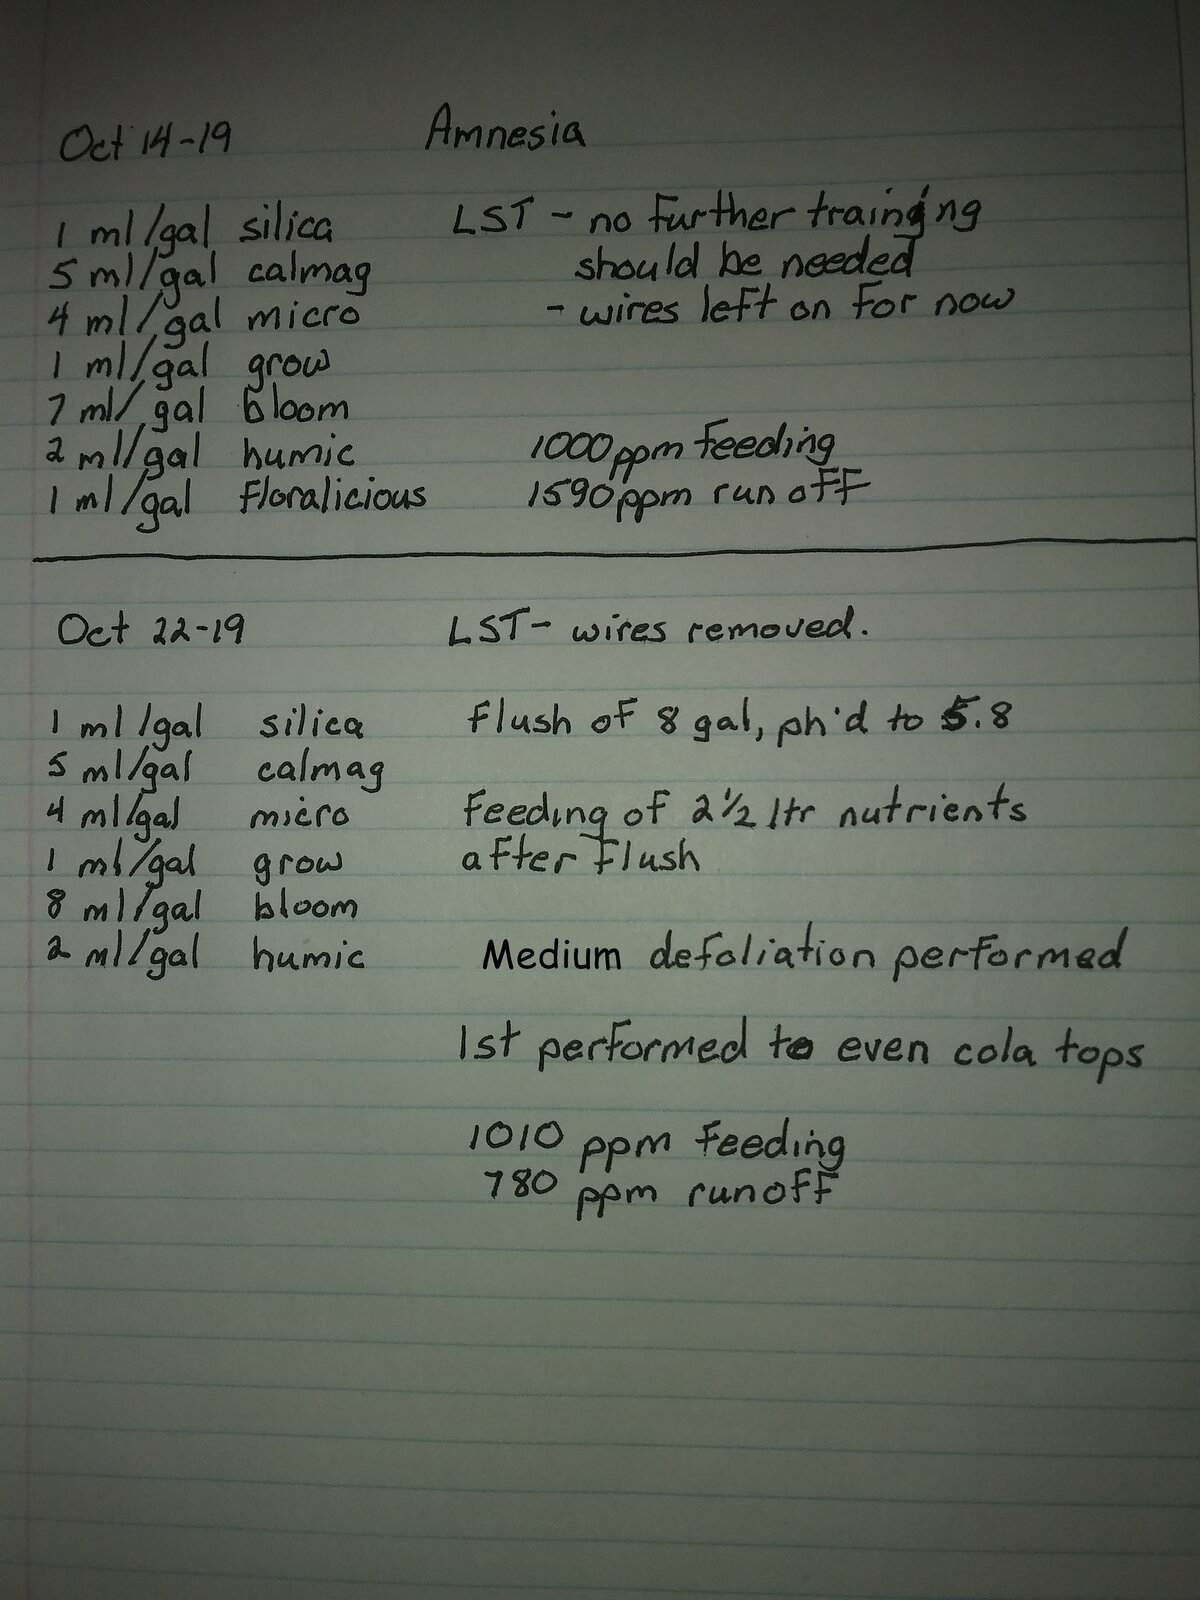 Oct 14-19 Amnesia
1 ml/gal silica LST - no further trainging
5 ml/gal calmag should be needed
4 ml/gal micro - wires left on for now
1 ml/gal grow
7 ml/gal bloom
2 ml/gal humic 1000ppm feeding
1 ml/gal floralicious 1590ppm run off
Oct 22-19 LST- wires removed.
1 ml/gal silica Flush of 8 gal, ph'd to 5.8
5 ml/gal calmag
4 ml/gal micro Feeding of 2 1/2 ltr nutrients
1 ml/gal grow after flush
8 ml/gal bloom
2 ml/gal humic Medium defoliation performed
1st performed to even cola tops
1010 ppm feeding
780 ppm runoff